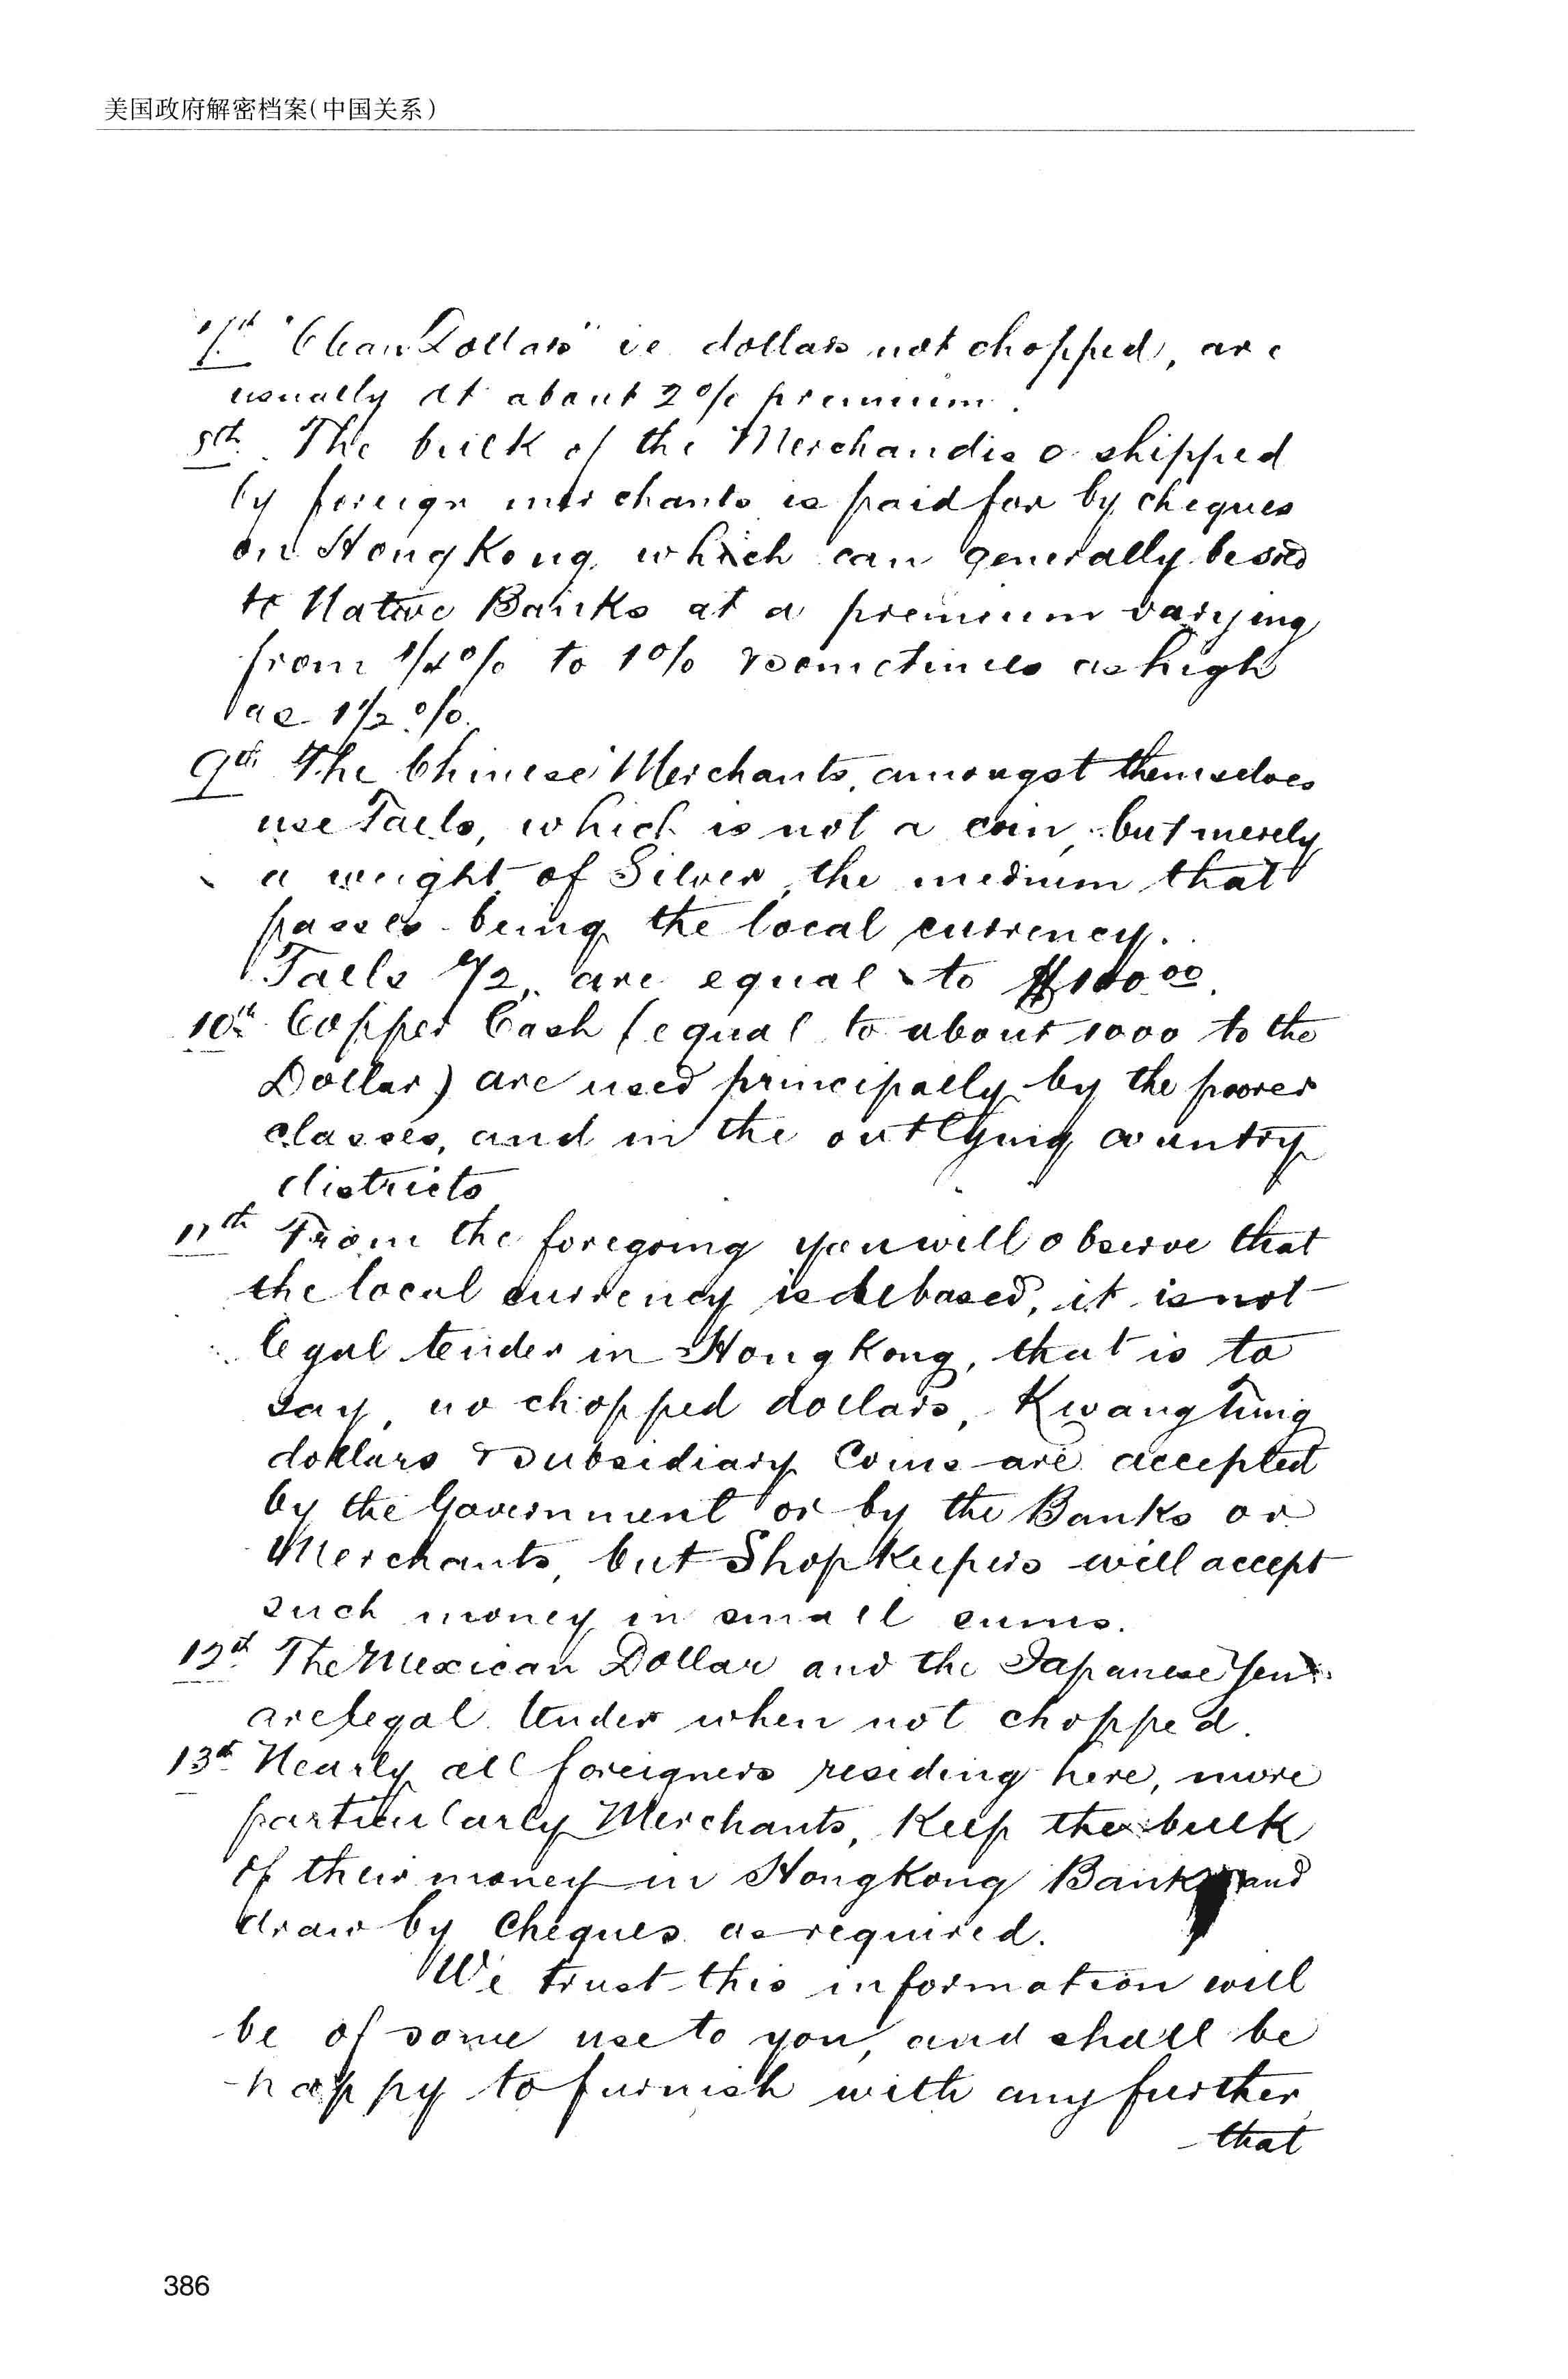 美国政府解密档案(中国关系)
7th "Clean Dollars" ie dollars not chopped, are
usually at about 2% premium.
8th The bulk of the Merchandise shipped
by foreign merchants is paid for by cheques
on HongKong, which can generally be sold
to Native Banks at a premium varying
from 1/4% to 1% & sometimes as high
as 1 1/2 %.
9th The Chinese Merchants, amongst themselves
use Taels, which is not a coin, but merely
a weight of Silver, the medium that
passes being the local currency.
Taels 72, are equal to $100.00.
10th Copper Cash (equal to about 1000 to the
Dollar) are used principally by the poorer
classes, and in the outlying country
districts
11th From the foregoing you will observe that
the local currency is debased, it is not
legal tender in HongKong, that is to
say, no chopped dollars, Kwangtung
dollars & subsidiary Coins are accepted
by the Government or by the Banks or
Merchants, but ShopKeepers will accept
such money in small sums.
12th The Mexican Dollar and the Japanese Yen
are legal tender when not chopped.
13th Nearly all foreigners residing here, more
particularly Merchants, Keep the bulk
of their money in HongKong Banks and
draw by Cheques as required.
We trust this information will
be of some use to you, and shall be
happy to furnish with any further
that
386